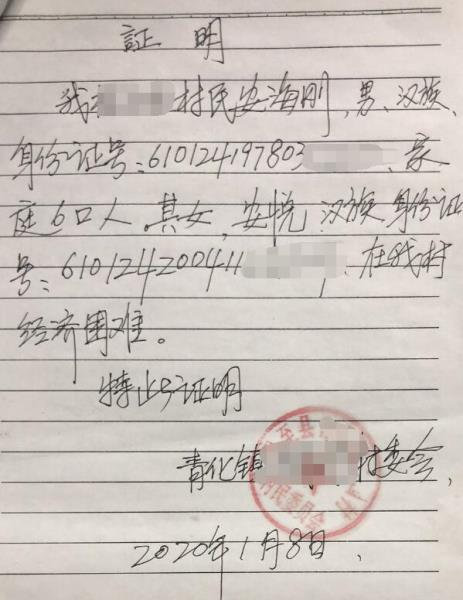 証明
我 村民安海刚,男、汉族、
身份证号:610124197803 、家
庭6口人.其女,安悦.汉族.身份证
号:610124200411 ,在我村
经济困难。
特此证明
青化镇 村委会,
至县
村民委员会
2020年1月8日.